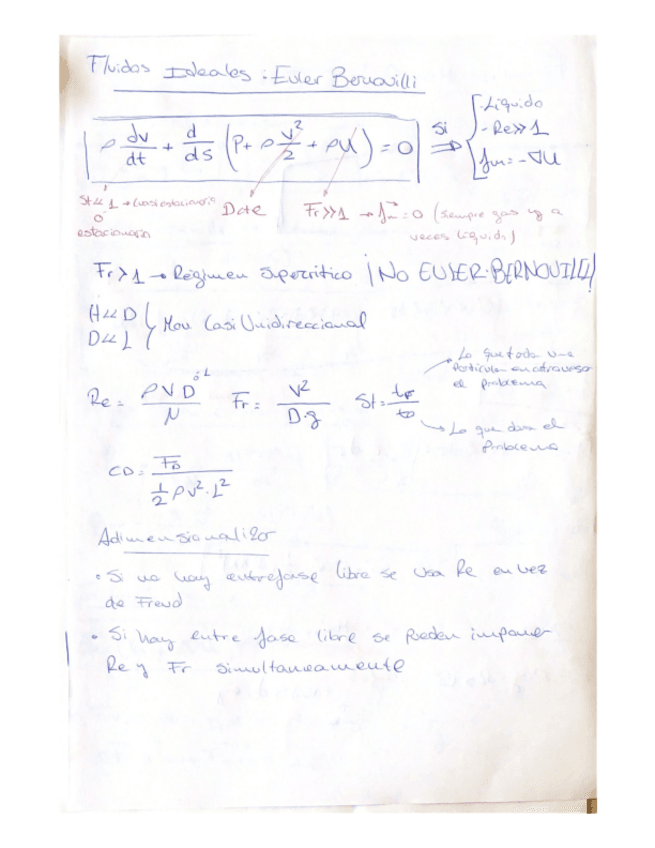 Fluidos Ideales: Euler Bernouilli
ρ dv/dt + d/ds (P + ρ v²/2 + ρU) = 0 Si ⇒ - Líquido
- Re>>1
fm = -∇U
St<<1 → Cuasiestacionario
0
estacionario
Dcte
Fr>>1 → fm = 0 (siempre gas y a
veces líquido)
Fr>1 → Régimen Supercrítico ¡NO EULER-BERNOUILLI!
H<<D
D<<L
Mov Casi Unidireccional
Re = ρVD ó L / μ Fr = V² / D·g St = to / to
Lo que tarda una
Partícula en atravesar
el problema
Lo que dura el
Problema
CD = FD / ½ ρV²·L²
Adimensionalizo
• Si no hay entrefase libre se usa Re en vez
de Freud
• Si hay entre fase libre se pueden imponer
Re y Fr simultaneamente